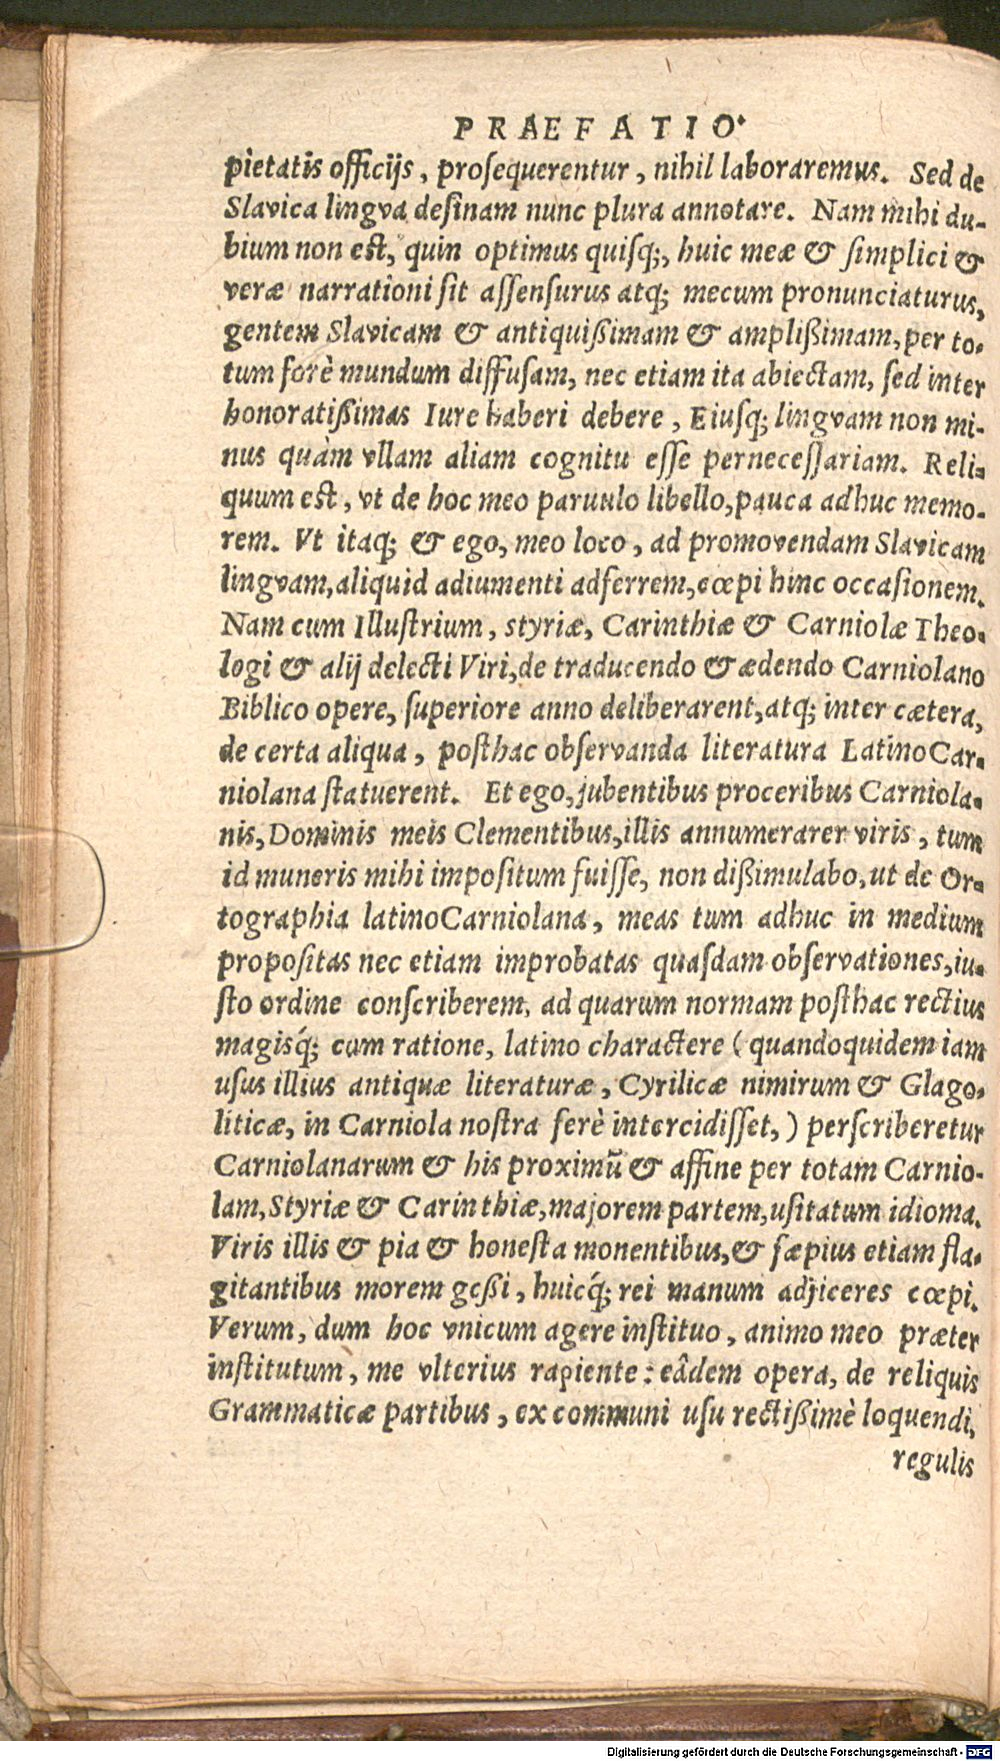 PRAEFATIO.
pietatis officijs, proſequerentur, nihil laboraremus. Sed de
Slavica lingva deſinam nunc plura annotare. Nam mihi du-
bium non est, quin optimus quiſq;, huic meæ & ſimplici &
veræ narrationi ſit aſſenſurus atq; mecum pronunciaturus,
gentem Slavicam & antiquißimam & amplißimam, per to-
tum forè mundum diffuſam, nec etiam ita abiectam, ſed inter
honoratißimas Iure haberi debere, Eiuſq; lingvam non mi-
nus quàm vllam aliam cognitu eſſe perneceſſariam. Reli-
quum est, vt de hoc meo paruulo libello, pauca adhuc memo-
rem. Vt itaq; & ego, meo loco, ad promovendam Slavicam
lingvam, aliquid adiumenti adferrem, cœpi hinc occaſionem.
Nam cum Illuſtrium, styriæ, Carinthiæ & Carniolæ Theo-
logi & alij delecti Viri, de traducendo & ædendo Carniolano
Biblico opere, ſuperiore anno deliberarent, atq; inter cætera,
de certa aliqua, poſthac obſervanda literatura LatinoCar-
niolana ſtatuerent. Et ego, jubentibus proceribus Carniola-
nis, Dominis meis Clementibus, illis annumerarer viris, tum
id muneris mihi impoſitum fuiſſe, non dißimulabo, ut de Or-
tographia latinoCarniolana, meas tum adhuc in medium
propoſitas nec etiam improbatas quaſdam obſervationes, iu-
ſto ordine conſcriberem, ad quarum normam poſthac rectius
magisq́; cum ratione, latino charactere (quandoquidem iam
uſus illius antiquæ literaturæ, Cyrilicæ nimirum & Glago-
liticæ, in Carniola noſtra ferè intercidiſſet,) perſcriberetur
Carniolanarum & his proximū & affine per totam Carnio-
lam, Styriæ & Carinthiæ, majorem partem, uſitatum idioma.
Viris illis & pia & honeſta monentibus, & ſæpius etiam fla-
gitantibus morem geßi, huicq́; rei manum adjiceres cœpi.
Verum, dum hoc vnicum agere inſtituo, animo meo præter
inſtitutum, me vlterius rapiente: eâdem opera, de reliquis
Grammaticæ partibus, ex communi uſu rectißimè loquendi,
regulis
Digitalisierung gefördert durch die Deutsche Forschungsgemeinschaft - DFG